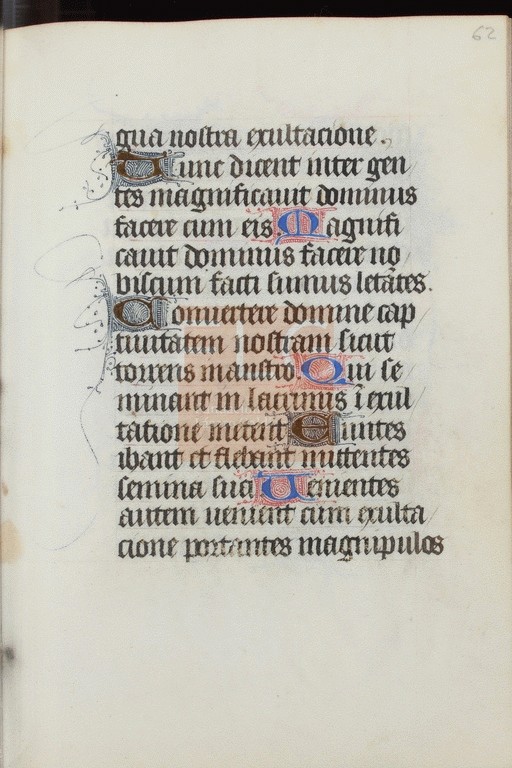 62
gua nostra exultacione.
Tunc dicent inter gen
tes magnificauit dominus
facere cum eis. Magnifi
cauit dominus facere no
biscum facti sumus letantes.
Conuertere domine cap
tiuitatem nostram sicut
torrens in austro. Qui se
minant in lacrimis i exul
tatione metent Euntes
ibant et flebant mittentes
semina sua Uenientes
autem uenient cum exulta
cione portantes magnipulos